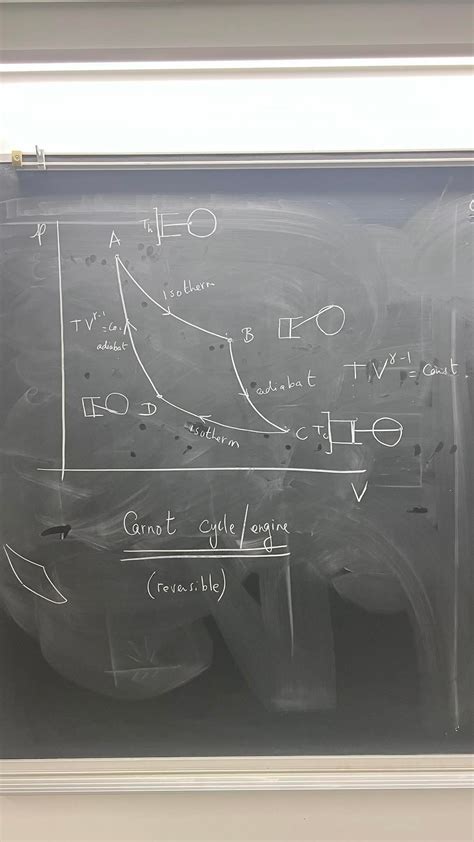 p
A
Th
isotherm
TV^γ-1
= co.
adiabat
B
adiabat
TV^γ-1 = const.
D
isotherm
C
Tc
V
Carnot cycle/engine
(reversible)